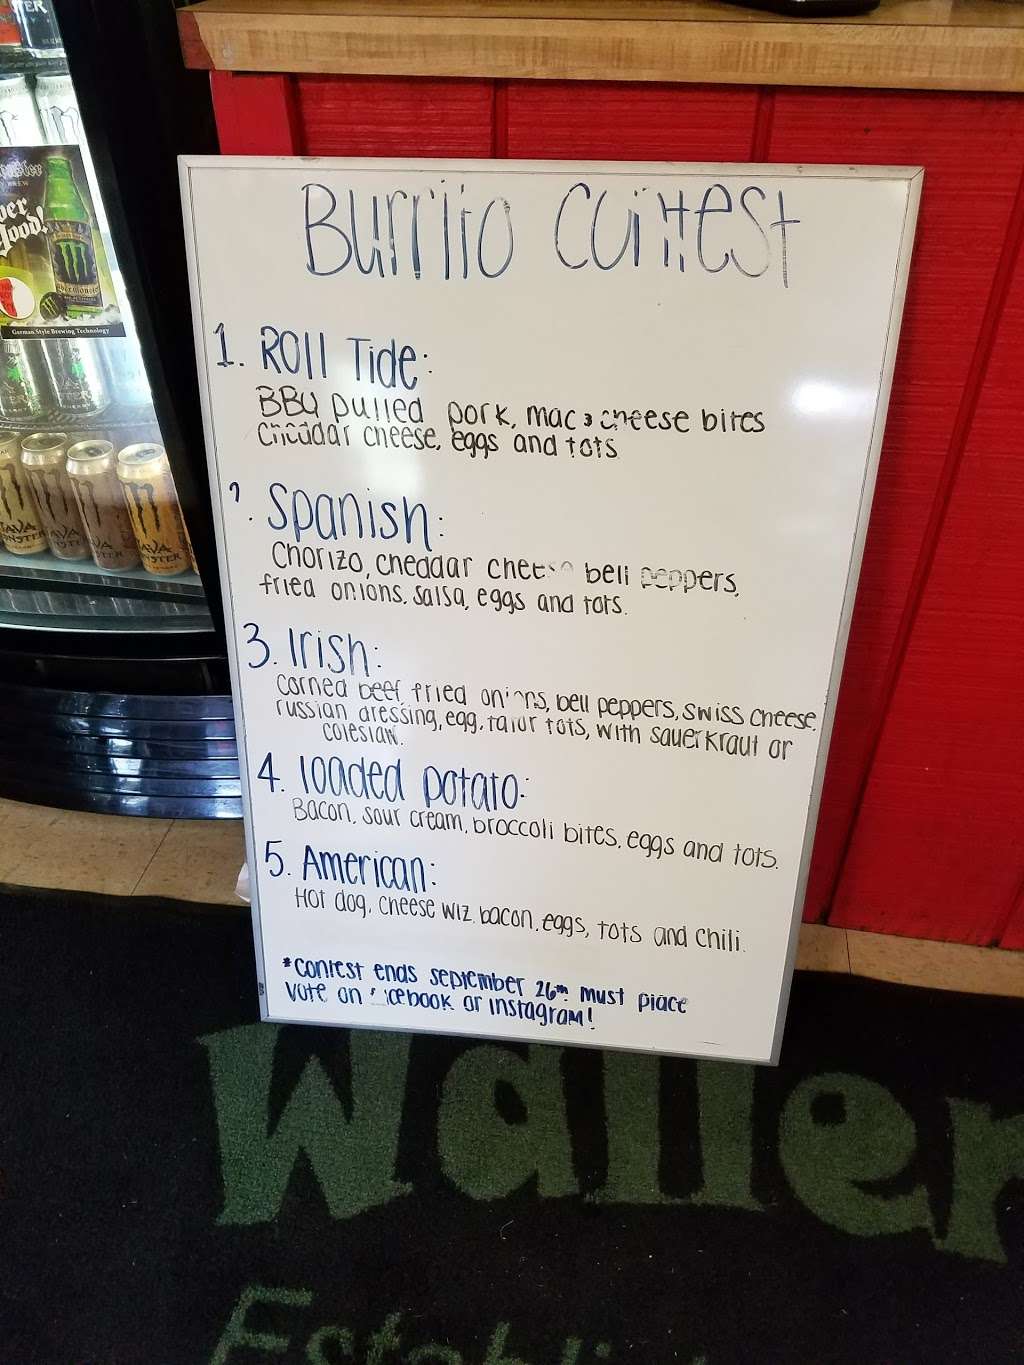 Burrito Contest
1. Roll Tide:
BBQ pulled pork, mac & cheese bites
cheddar cheese, eggs and tots
2. Spanish:
Chorizo, cheddar cheese bell peppers,
fried onions, salsa, eggs and tots.
3. Irish:
corned beef fried onions, bell peppers, swiss cheese,
russian dressing, egg, tator tots, with sauerkraut or
coleslaw.
4. loaded potato:
Bacon, sour cream, broccoli bites, eggs and tots.
5. American:
Hot dog, cheese wiz, bacon, eggs, tots and chili.
*contest ends september 26th must place
vote on facebook or instagram!
German Style Brewing Technology
JAVA MONSTER
Waller